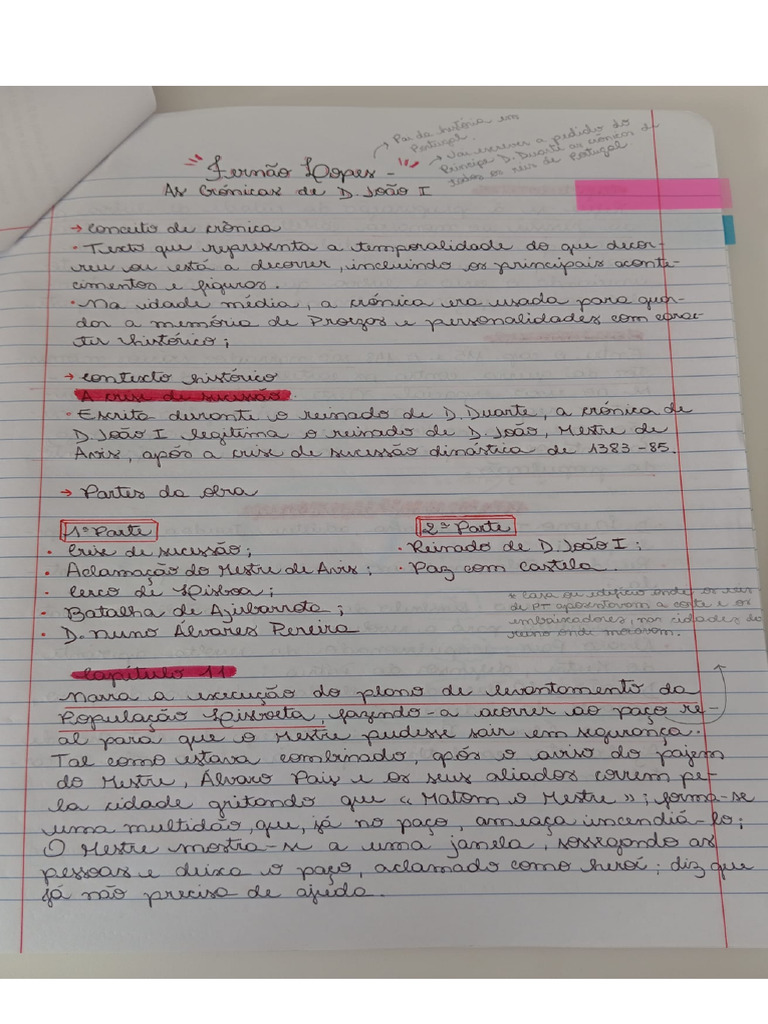 → Pai da história em
Portugal.
Fernão Lopes -
→ Vai escrever a pedido do
Príncipe D. Duarte as crónicas de
todos os reis de Portugal.
As Crónicas de D. João I
→ Conceito de crònica
• Texto que representa a temporalidade do que decor-
reu ou está a decorrer, incluindo os principais aconte-
cimentos e figuras.
• Na idade média, a crónica era usada para guar-
dar a memória de Proezas e personalidades com carac-
ter histórico;
→ Contexto histórico
A crise de sucessão.
• Escrita durante o reinado de D. Duarte, a crónica de
D. João I legitima o reinado de D. João, Mestre de
Avis, após a crise de sucessão dinástica de 1383-85.
→ Partes da obra
1ª Parte
• Crise de sucessão;
• Aclamação do Mestre de Avis;
• Cerco de Lisboa;
• Batalha de Aljubarrota;
• D. Nuno Álvares Pereira
2ª Parte
• Reinado de D. João I;
• Paz com Castela.
* Casa ou edifício onde os reis
de PT aposentavam a corte e os
embaixadores, nas cidades do
reino onde moravam.
Capítulo 11
Narra a execução do plano de levantamento da
População Lisboeta, fazendo-a acorrer ao paço re-
al para que o Mestre pudesse sair em segurança.
Tal como estava combinado, após o aviso do pajem
do Mestre, Álvaro Pais e os seus aliados correm pe-
la cidade gritando que «Matam o Mestre»; forma-se
uma multidão, que, já no paço, ameaça incendiá-lo;
O Mestre mostra-se a uma janela, sossegando as
pessoas e deixa o paço, aclamado como herói; diz que
já não precisa de ajuda.